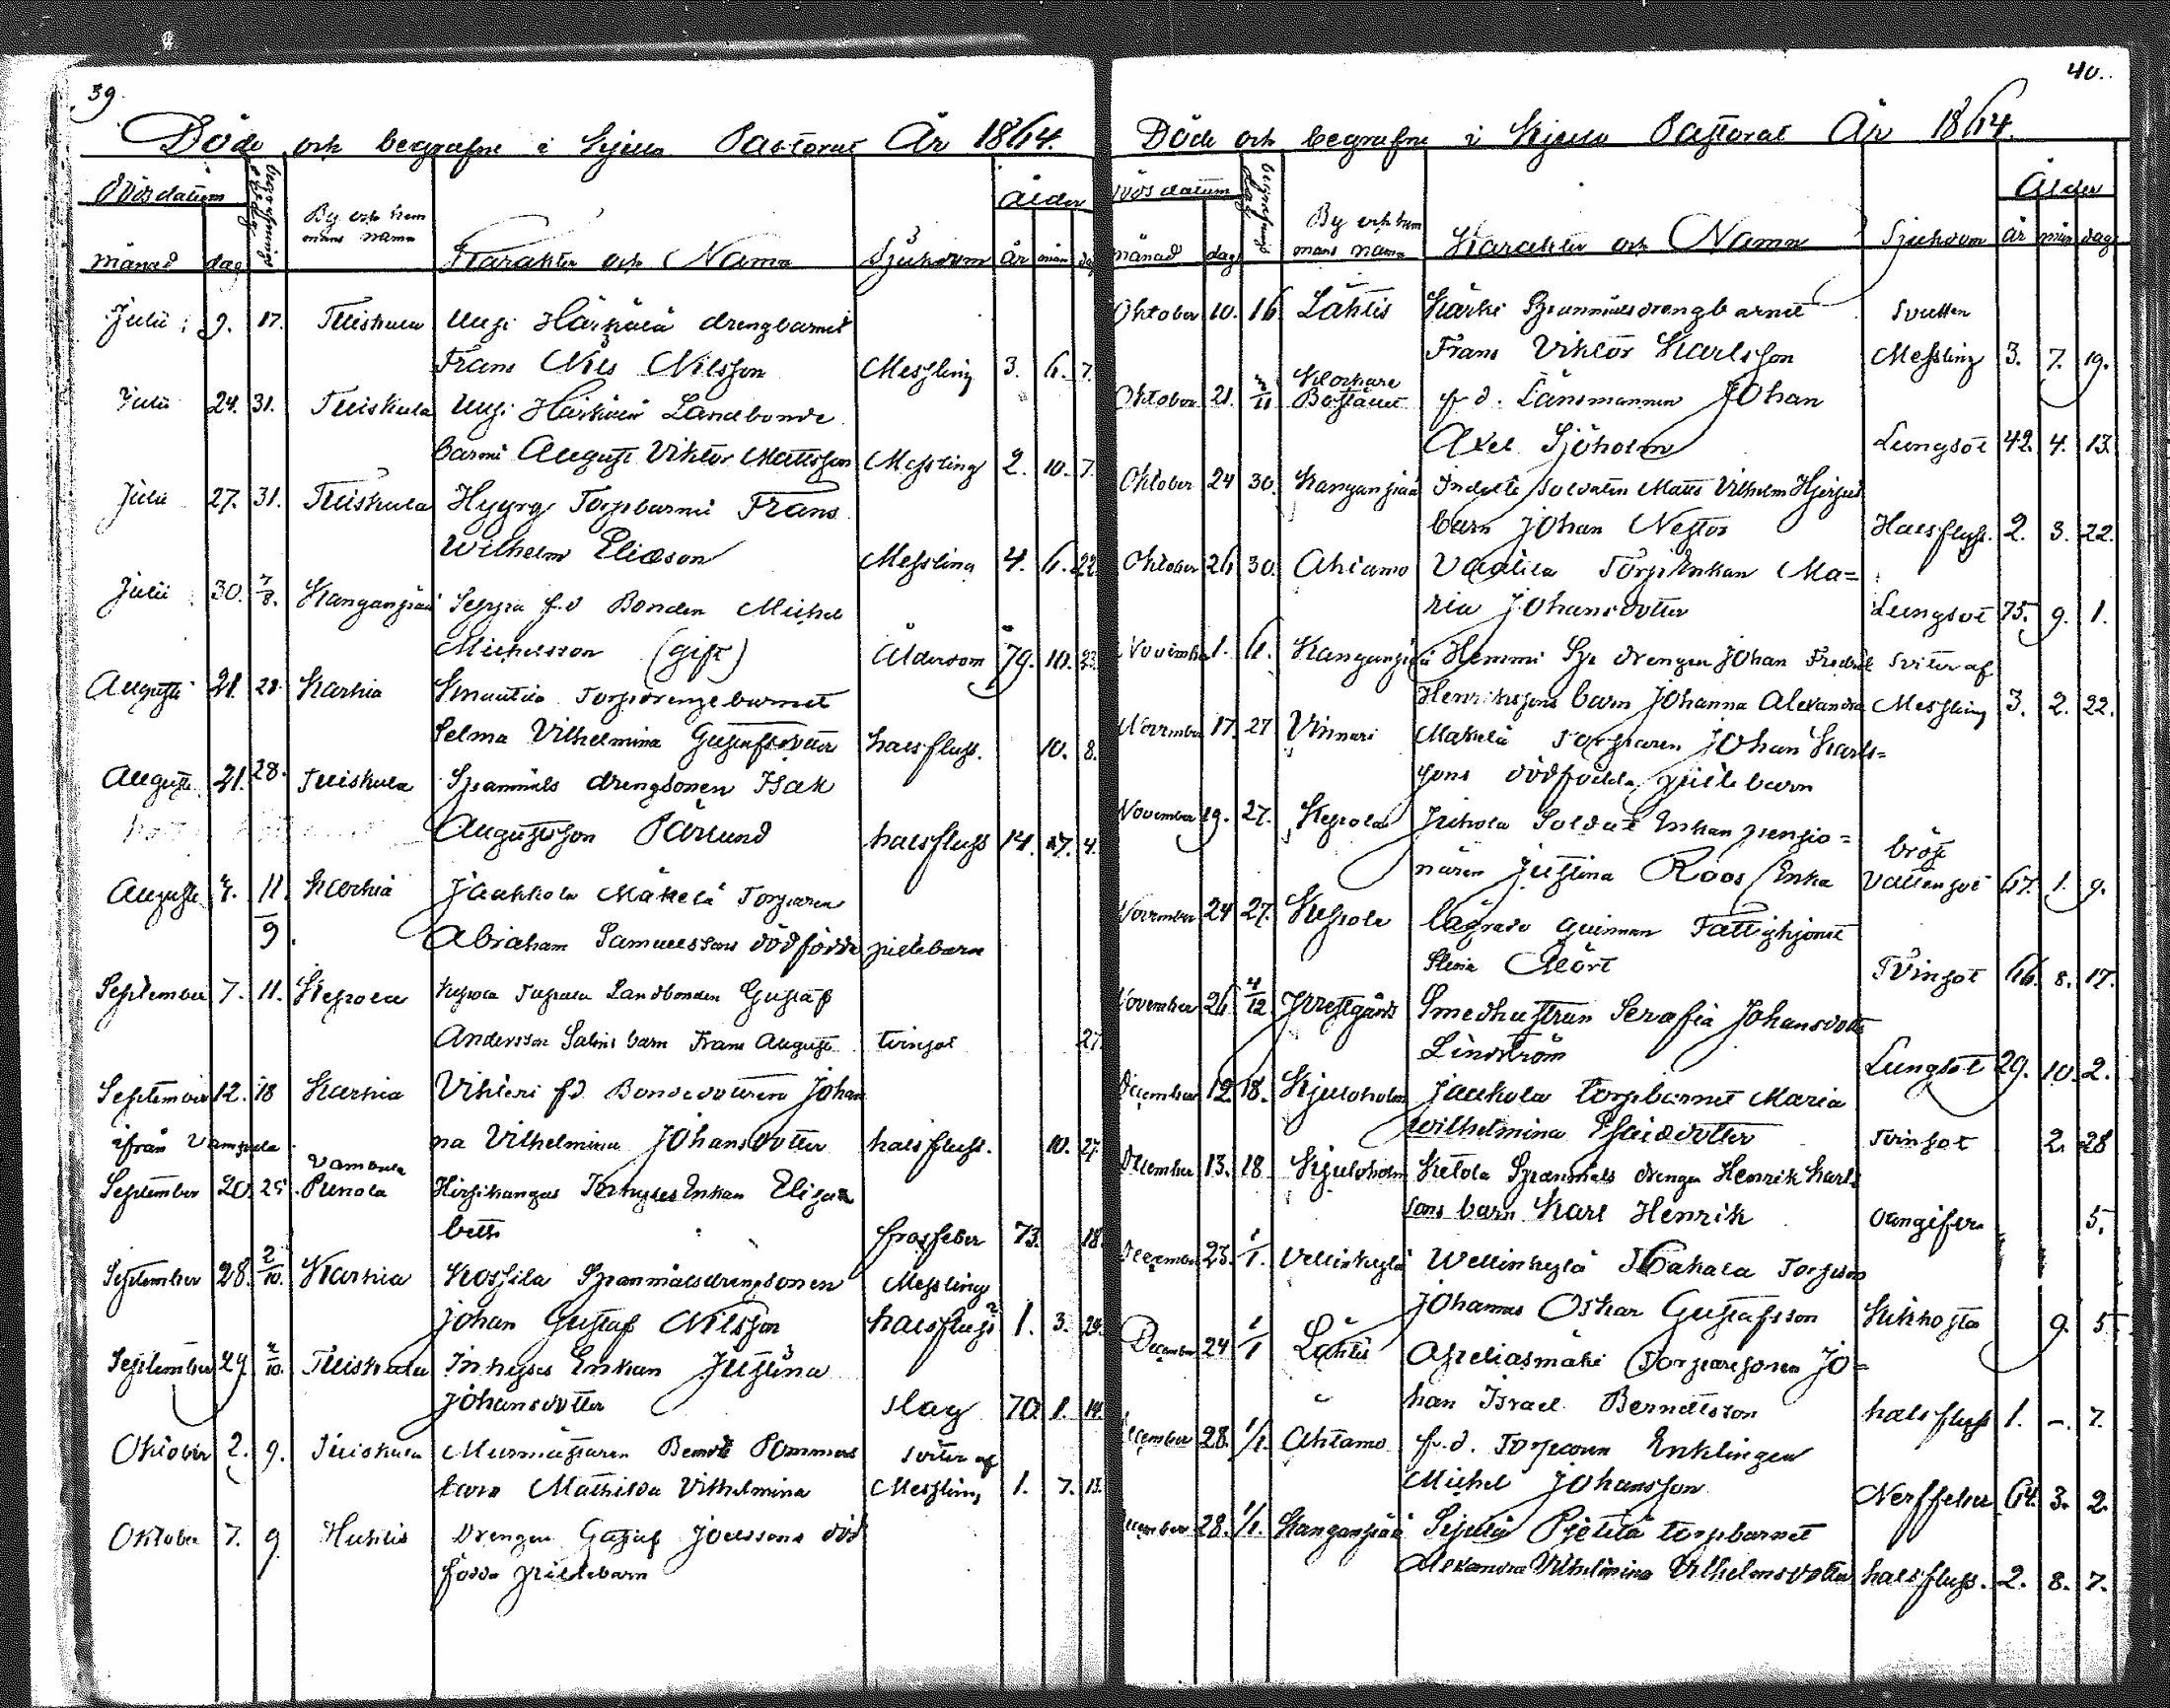 39.
Döde och begrafne i Kjulo Pastorat År 1864.
Dödsdatum begrafnings dag By och hem Ålder
mans namn
månad dag Karakter och Namn Sjukdom år mån dag
Julii 9. 17. Tuiskula Uusi Härkälä drengbarnet
Frans Nils Nilsson Messling 3. 6. 7.
Julii 24. 31. Tuiskula Uusi Härkälä Landbonde
barnet August Viktor Mattsson Messling 2. 10. 7.
Julii 27. 31. Tuiskula Hyyry Torpbarnet Frans
Wilhelm Eliasson Messling 4. 6. 22.
Julii 30. 7/8. Kanganpää Seppä f.d Bonden Michel
Michelsson (gift) Ålderdom 79. 10. 23.
Augusti 21. 28. Karhia Torpdrenge barnet
Selma Vilhelmina Gustafsdotter halsfluss. 10. 8.
Augusti 21. 28. Tuiskula Spanmåls drengsonen Isak
Augustsson Pärlund halsfluss 14. 7. 4.
Augusti 7. 11. Karhia Jaakkola Mäkelä Torparen
9. Abraham Samuelssons dödfödde pilebarn
September 7. 11. Kepola Kepola Landbonden Gustaf
Andersson Salins barn Frans August tvinsot 27.
September 12. 18 Karhia Vihteri f.d. Bondedotteren Johan
ifrån Vampula na Vilhelmina Johansdotter halsfluss. 10. 27.
Vampula
September 20. 25. Punola Hirsikangas Inhyses Enkan Elisa
beth frossfeber 73. 18.
September 28. 2/10. Karhia Kossila Spanmålsdrengsonen Messling
Johan Gustaf Nilsson halsfluss 1. 3. 29.
September 29. 2/10. Tuiskula Inhyses Enkan Justina
Johansdotter slag 70. 1. 14.
Oktober 2. 9. Tuiskula Murmästaren Berndt Pommers sviter af
barn Mathilda Vilhelmina Messling 1. 7. 13.
Oktober 7. 9. Huhtis Drengen Gustaf Joelssons död
födda pilebarn
40.
Döde och begrafne i Kjulo Pastorat År 1864.
Dödsdatum begrafnings dag By och hem Ålder
mans namn
månad dag Karakter och Namn Sjukdom år mån dag
Oktober 10. 16 Lähtis Kärki Spanmålsdrengbarnet Svitten
Frans Viktor Karlsson Messling 3. 7. 19.
Klockare
Oktober 21. 11 Bostället f.d. Länsmannen Johan
Axel Sjöholm Lungsot 42. 4. 13.
Oktober 24 30. Kanganpää Indelte soldaten Matts Vilhelm
barn Johan Nestor Halsfluss. 2. 3. 22.
Oktober 26 30. Ahtamo Torp Enkan Ma=
ria Johansdotter Lungsot 75. 9. 1.
November 1. 6. Kanganpää Hemmi Sp drengen Johan Fredrik sviter af
Henrikssons barn Johanna Alexandra Messling 3. 2. 22.
November 17. 27 Vinnari Mäkelä Torparen Johan Karls=
sons dödfödda pilebarn
November 19. 27. Kepola Juhola Soldat Enkan pensio= bröst
nären Justina Roos Enka Vattensot 67. 1. 9.
November 24 27. Kepola lägrade quinnan Fattighjonet
Stina Mört Tvinsot 66. 8. 17.
November 26 4/12 Prestgård Smedhustrun Serafia Johansdotter
Lindström Lungsot 29. 10. 2.
December 12 18. Kjuloholm Jaakola torpbarnet Maria
Wilhelmina Tvinsot 2. 28
December 13. 18 Kjuloholm Ketola Spanmåls drengen Henrik Karls
sons barn Karl Henrik oangifven 5.
December 23. 1/1. Vellinkylä Wellinkylä Torpson
Johannes Oskar Gustafsson Kikhosta 9. 5
December 24 1/1 Lähtis Torparesonen Jo=
han Israel Berndtsson halsfluss 1. –. 7.
December 28. 1/1. Ahtamo f.d. Torparen Enklingen
Michel Johansson Nerffeber 64. 3. 2.
December 28. 1/1. Kanganpää torpbarnet
Alexandra Vilhelmina Vilhelmsdotter halsfluss. 2. 8. 7.